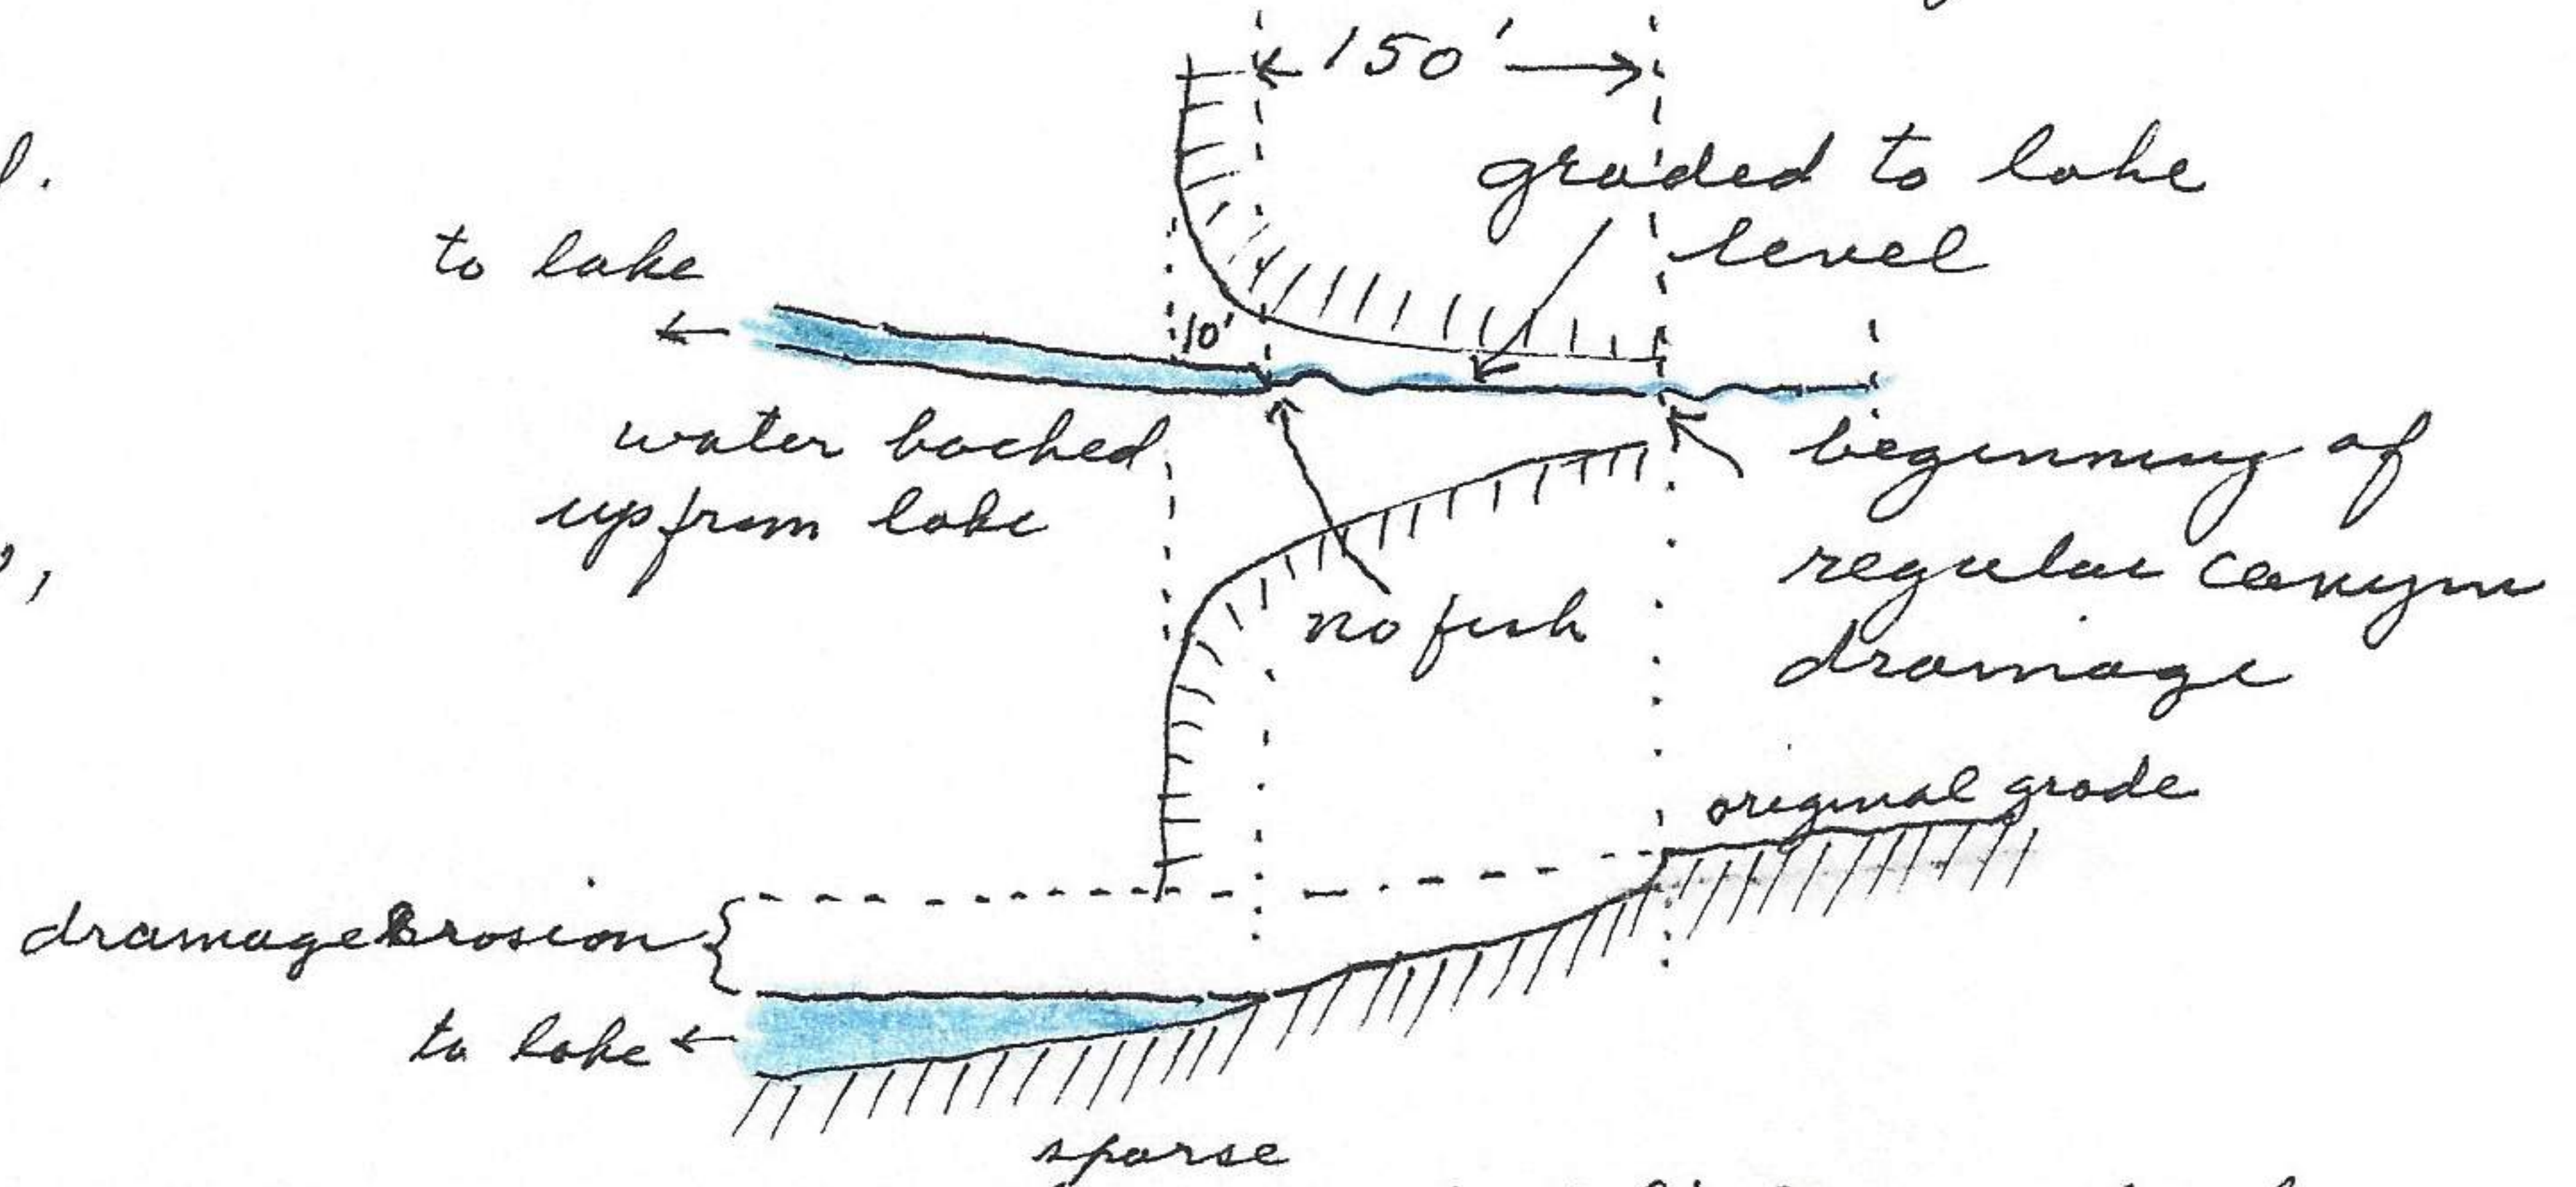 150'
graded to lake
level
to lake
10'
water backed
up from lake
beginning of
regular canyon
drainage
no fish
original grade
drainage erosion
to lake
sparse